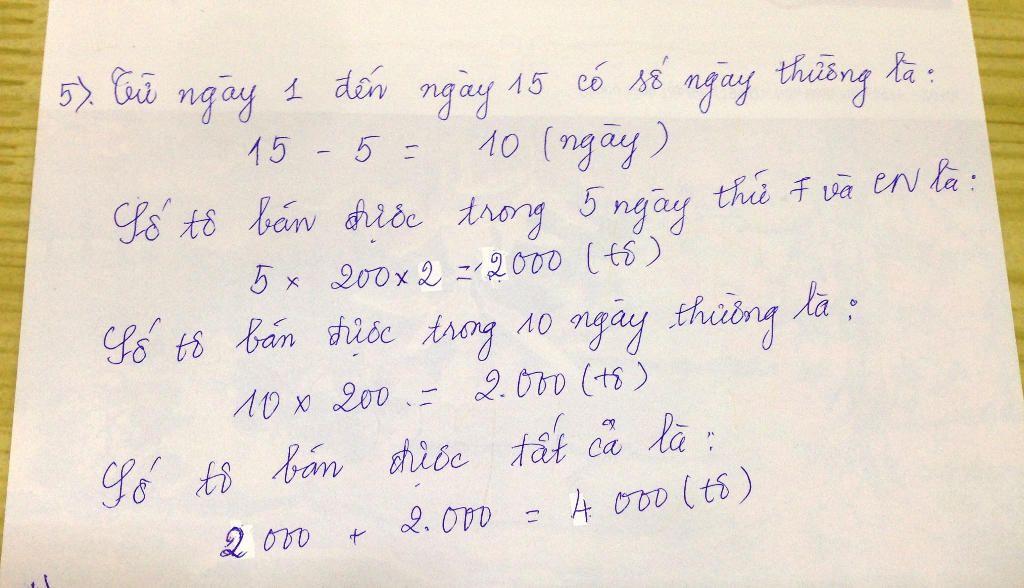 5). Từ ngày 1 đến ngày 15 có số ngày thường là:
15 - 5 = 10 (ngày)
Số tô bán được trong 5 ngày thứ 7 và CN là:
5 x 200 x 2 = 2000 (tô)
Số tô bán được trong 10 ngày thường là:
10 x 200 = 2.000 (tô)
Số tô bán được tất cả là:
2 000 + 2.000 = 4 000 (tô)